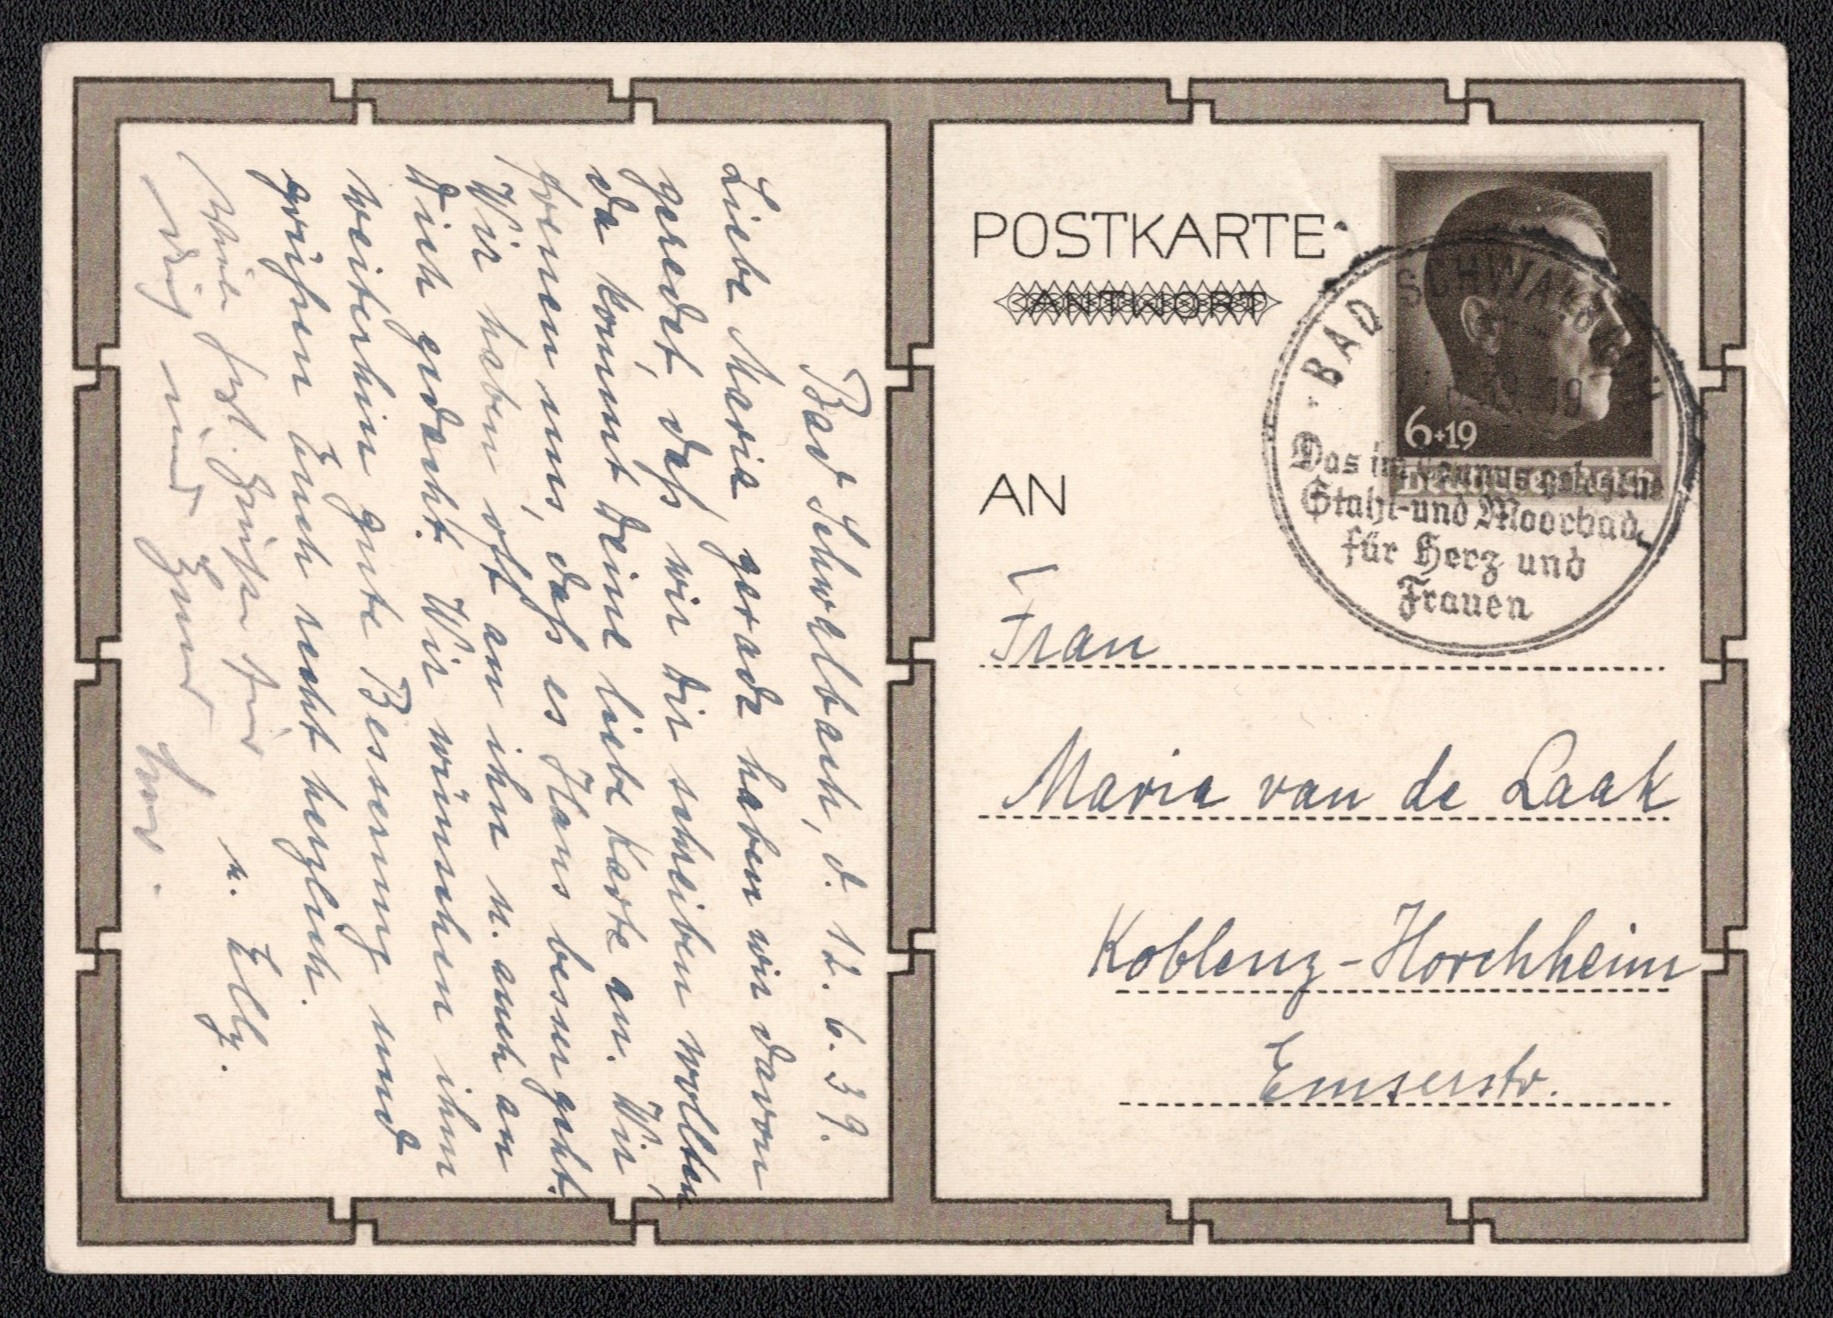 Bad Schwalbach, d. 12. 6. 39.
Liebe Maria gerade haben wir davon
geredet, daß wir Dir schreiben wollten,
da kommt Deine liebe Karte an. Wir
freuen uns, daß es Hans besser geht.
Wir haben oft an ihn u. auch an
Dich gedacht. Wir wünschen ihm
weiterhin gute Besserung und
grüßen Euch recht herzlich.
u. Elly.
Grüße für
Dich und
POSTKARTE
ANTWORT
6+19
BAD SCHWALBACH
Das im Taunus gelegene
Stahl- und Moorbad
für Herz und
Frauen
AN
Frau
Maria van de Laak
Koblenz-Horchheim
Emserstr.